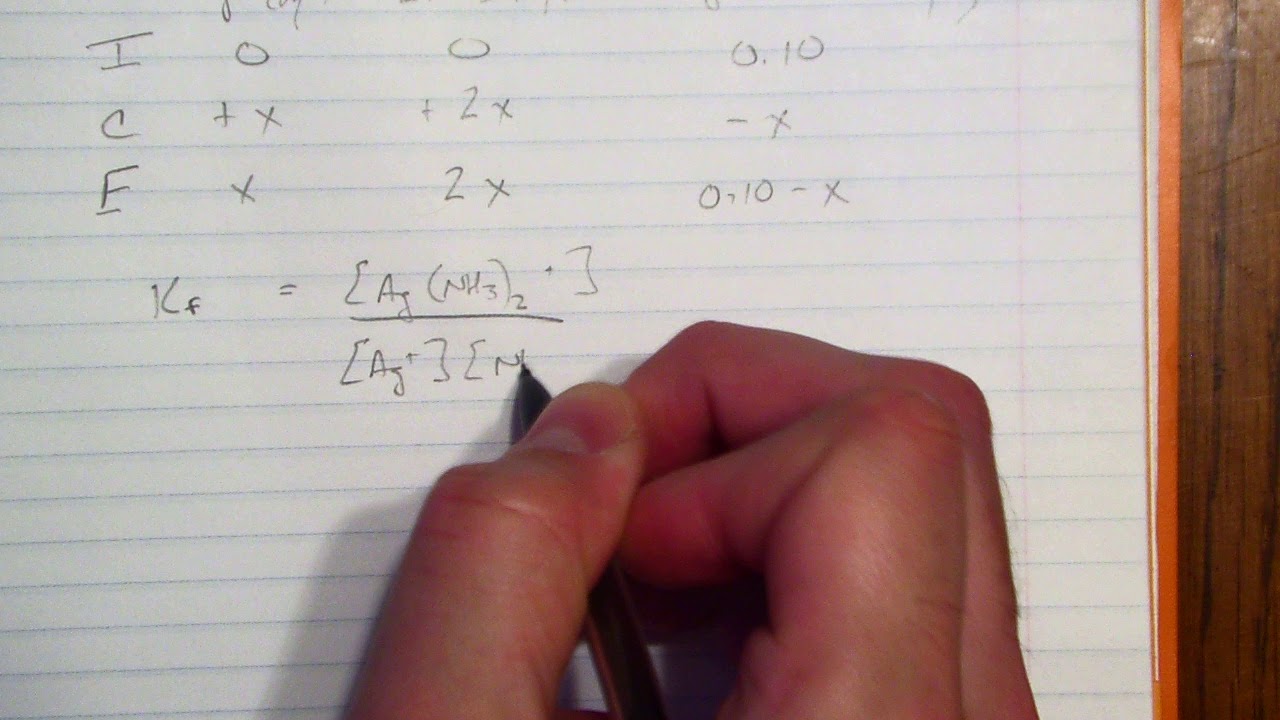 I 0 0 0.10
C + x + 2x - x
E x 2x 0.10 - x
Kf = [Ag(NH3)2+]
[Ag+][N